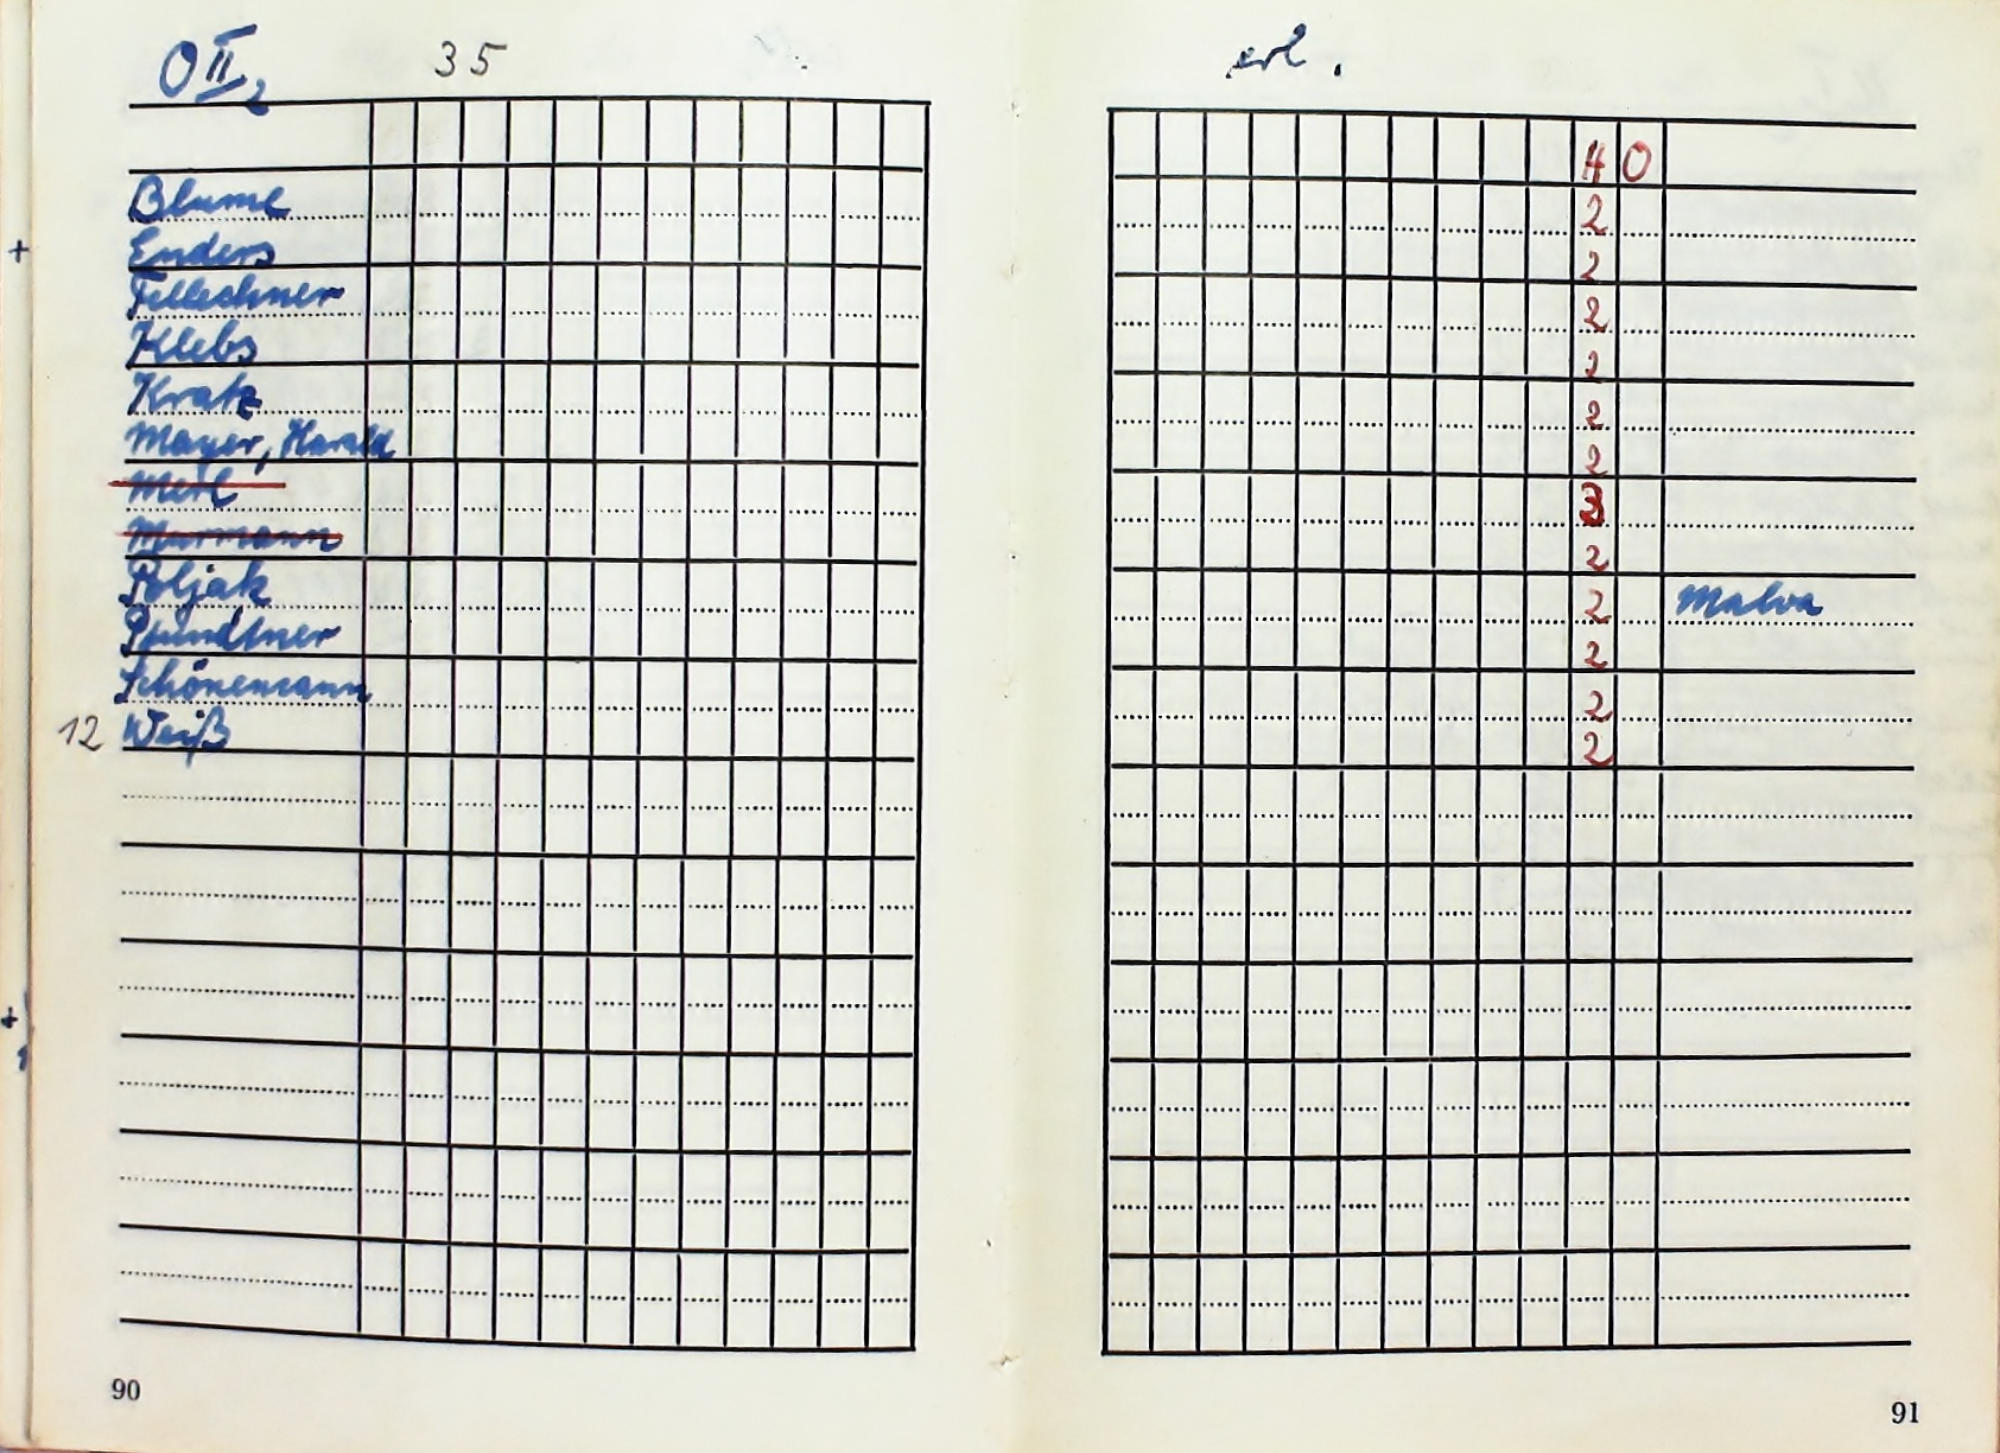 OII2 35
Blume
Enders
Fellechner
Klebs
Kratz
Mayer, Harald
Merl
Murmann
Poljak
Pfundtner
Schönemann
12 Weiß
90
erl.
H O
2
2
2
2
2
2
3
2
2 Malva
2
2
2
91